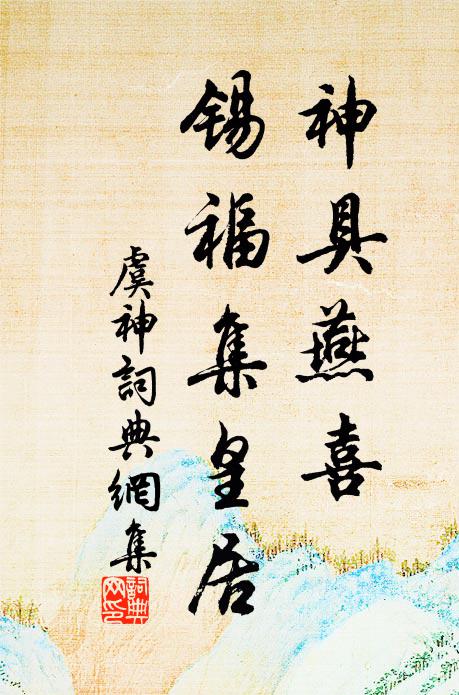 神具燕喜
錫福集皇居
虞神詞典網集
詞典
网印